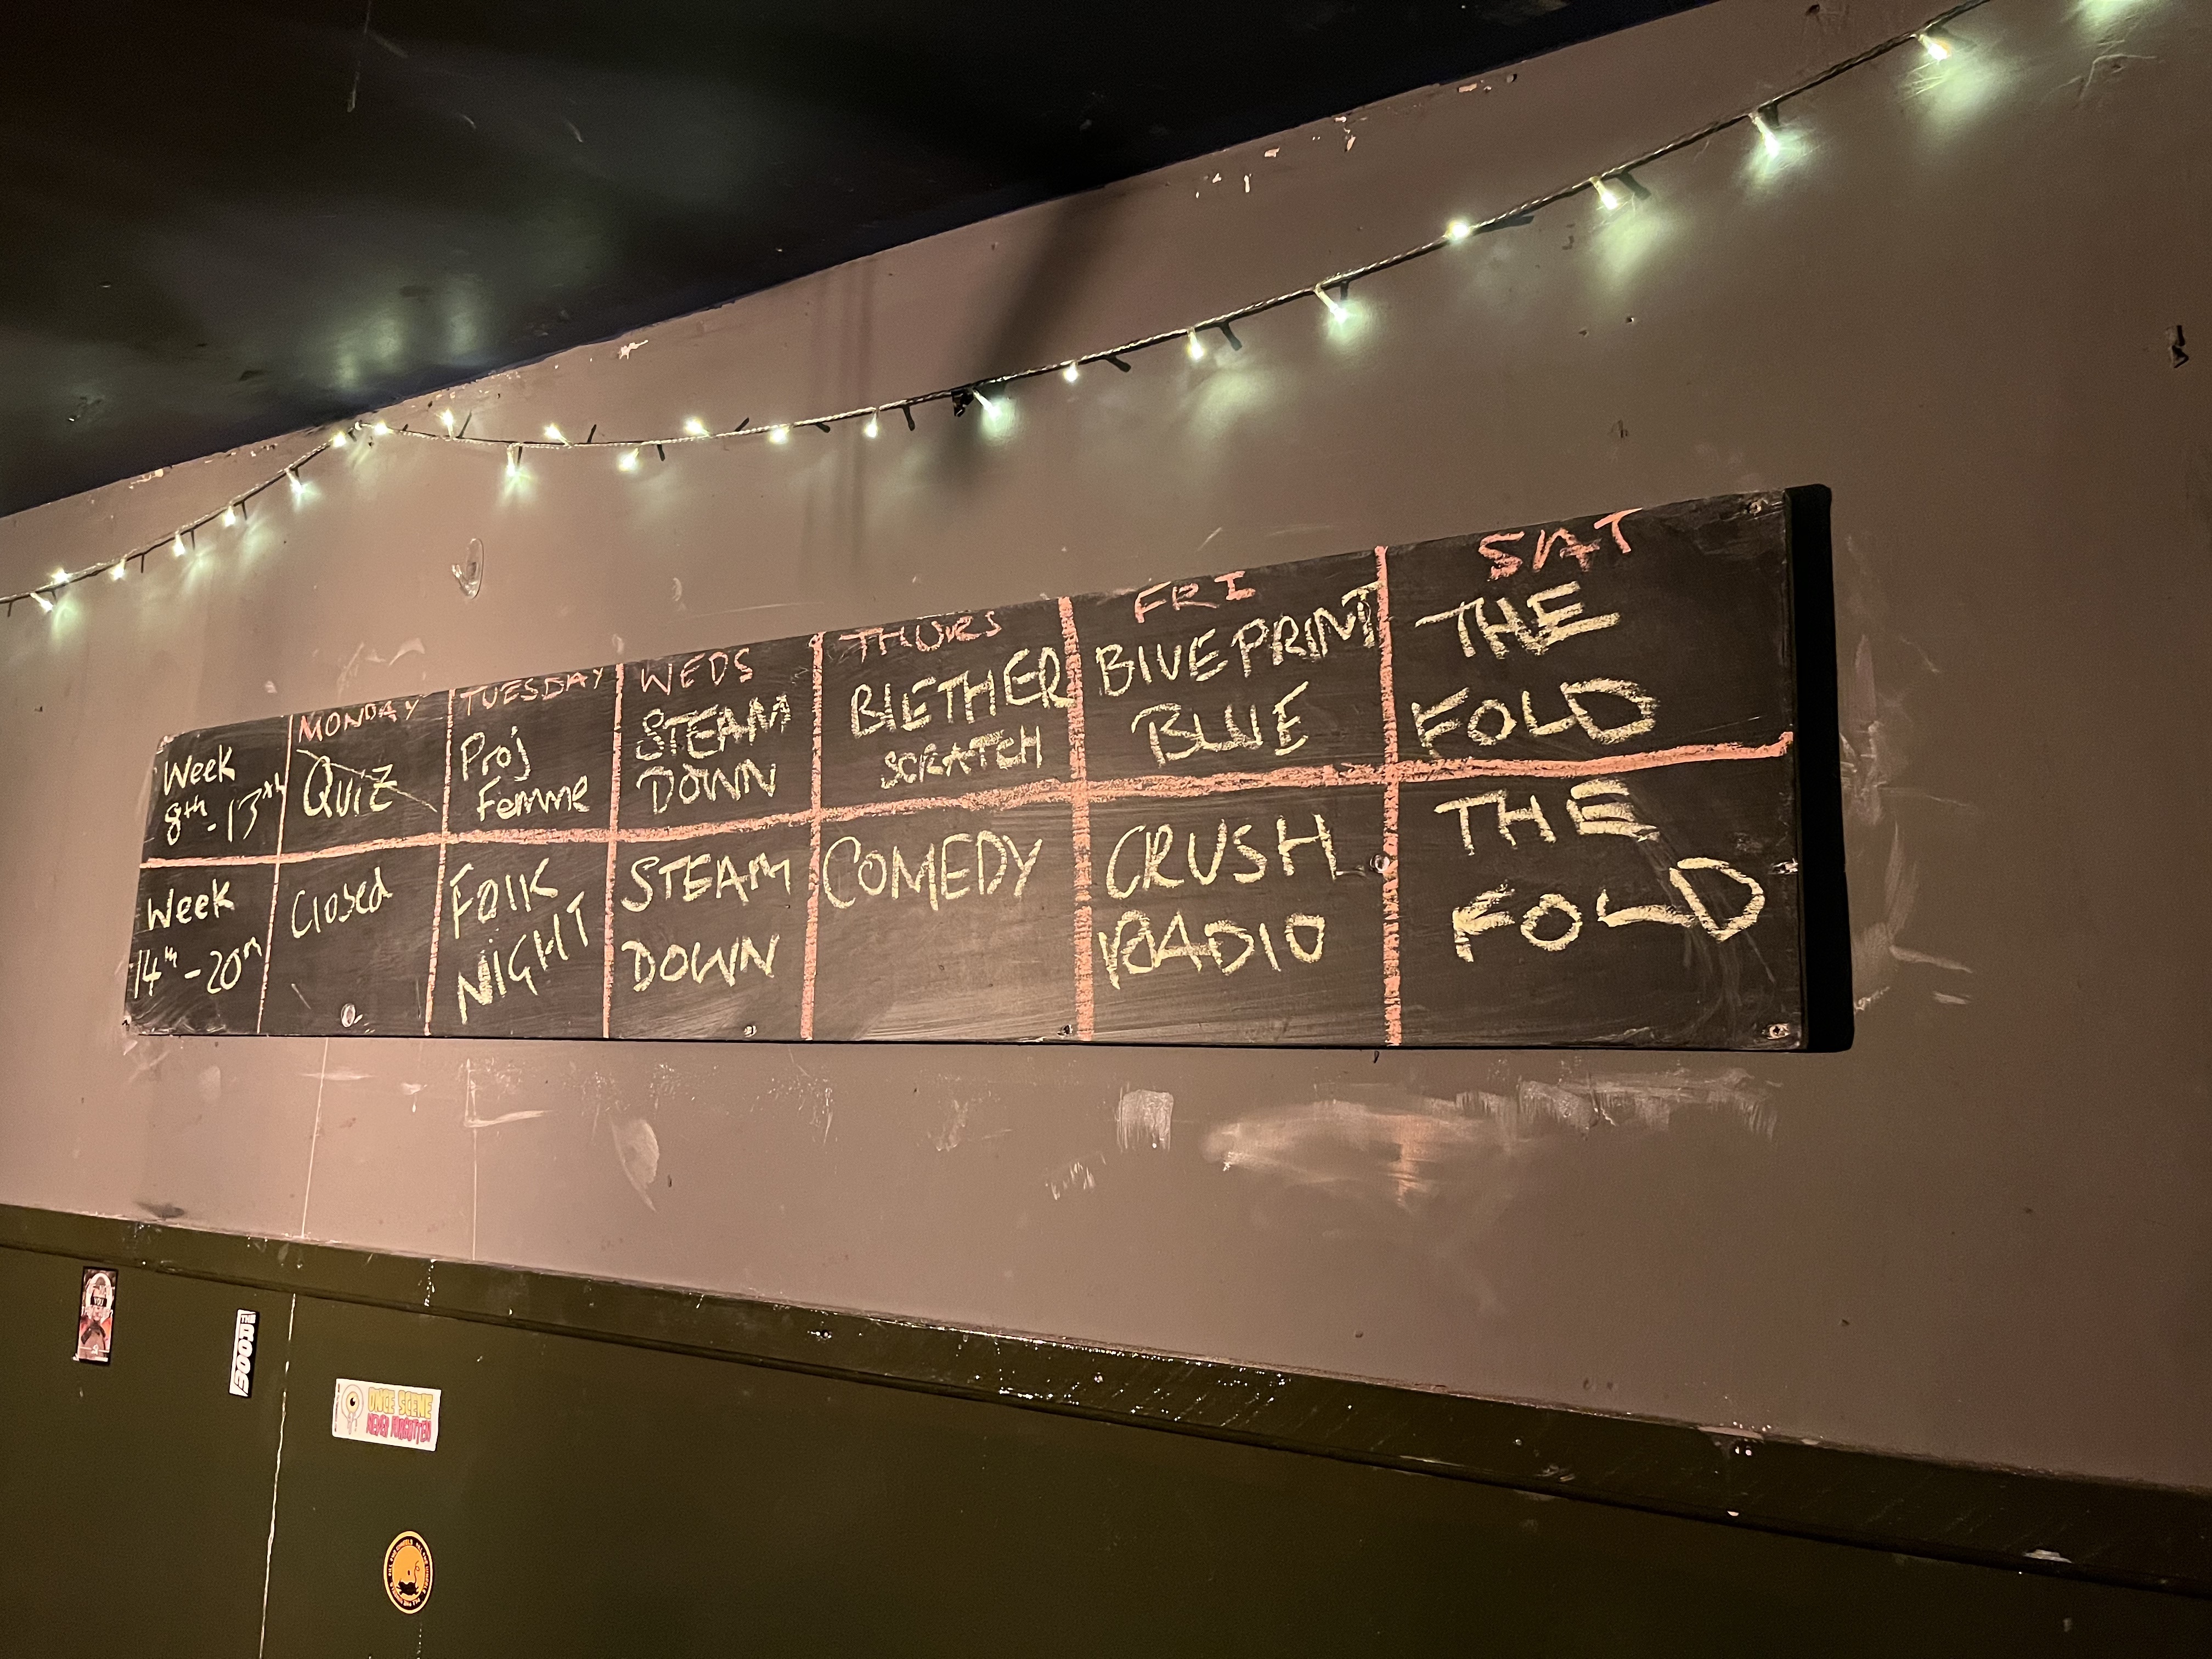 MONDAY
TUESDAY
WEDS
THURS
FRI
SAT
Week
8th - 13th
Quiz
Proj
Femme
STEAM
DOWN
BLETHER
SCRATCH
BLUEPRINT
BLUE
THE
FOLD
Week
14th - 20th
Closed
FOLK
NIGHT
STEAM
DOWN
COMEDY
CRUSH
RADIO
THE
FOLD
THE
ROOE
ONCE SCENE
NEVER FORGOTTEN